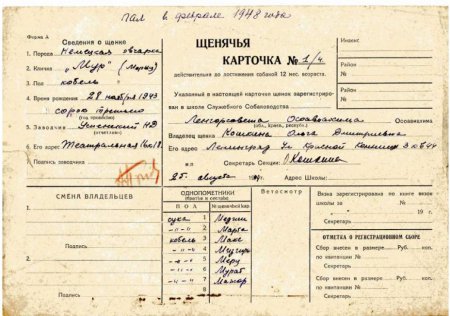 Пал в феврале 1948 года
Форма А
Сведения о щенке
1. Порода Немецкая овчарка
2. Кличка „Мур"
3. Пол кобель
4. Время рождения 28 ноября 1943
сорок третьего
(год прописью)
5. Заводчик Успенский НД
6. Его адрес Театральная 16 кв 18.
7. Подпись заводчика
ЩЕНЯЧЬЯ
КАРТОЧКА № 1/4
действительна до достижения собакой 12 мес. возраста.
Указанный в настоящей карточке щенок зарегистрирован
в школе Служебного Собаководства
Осоавиахима Осоавиахима
(обл., края, республ.)
Владелец щенка Кошкина Ольга Дмитриевна
Его адрес Ленинград ул Красной Конницы
Секретарь Секции:
25. августа Адрес Школы:
Индекс
Район
№
Район
№
СМЕНА ВЛАДЕЛЬЦЕВ
1.
Подпись
2.
Подпись
ОДНОПОМЕТНИКИ
(братья и сестры)
ПОЛ № щенячьей кар.
сука 1
2 Марта
кобель 3 Макс
4
5
6 Мурат
7 Мажор
8
Ветосмотр
Вязка зарегистрирована по книге вязок
школы за №
19 г.
Секретарь
ОТМЕТКА О РЕГИСТРАЦИОННОМ СБОРЕ
Сбор внесен в размере Руб. коп.
по квитанции №
Секретарь
Сбор внесен в размере Руб. коп.
по квитанции №
Секретарь